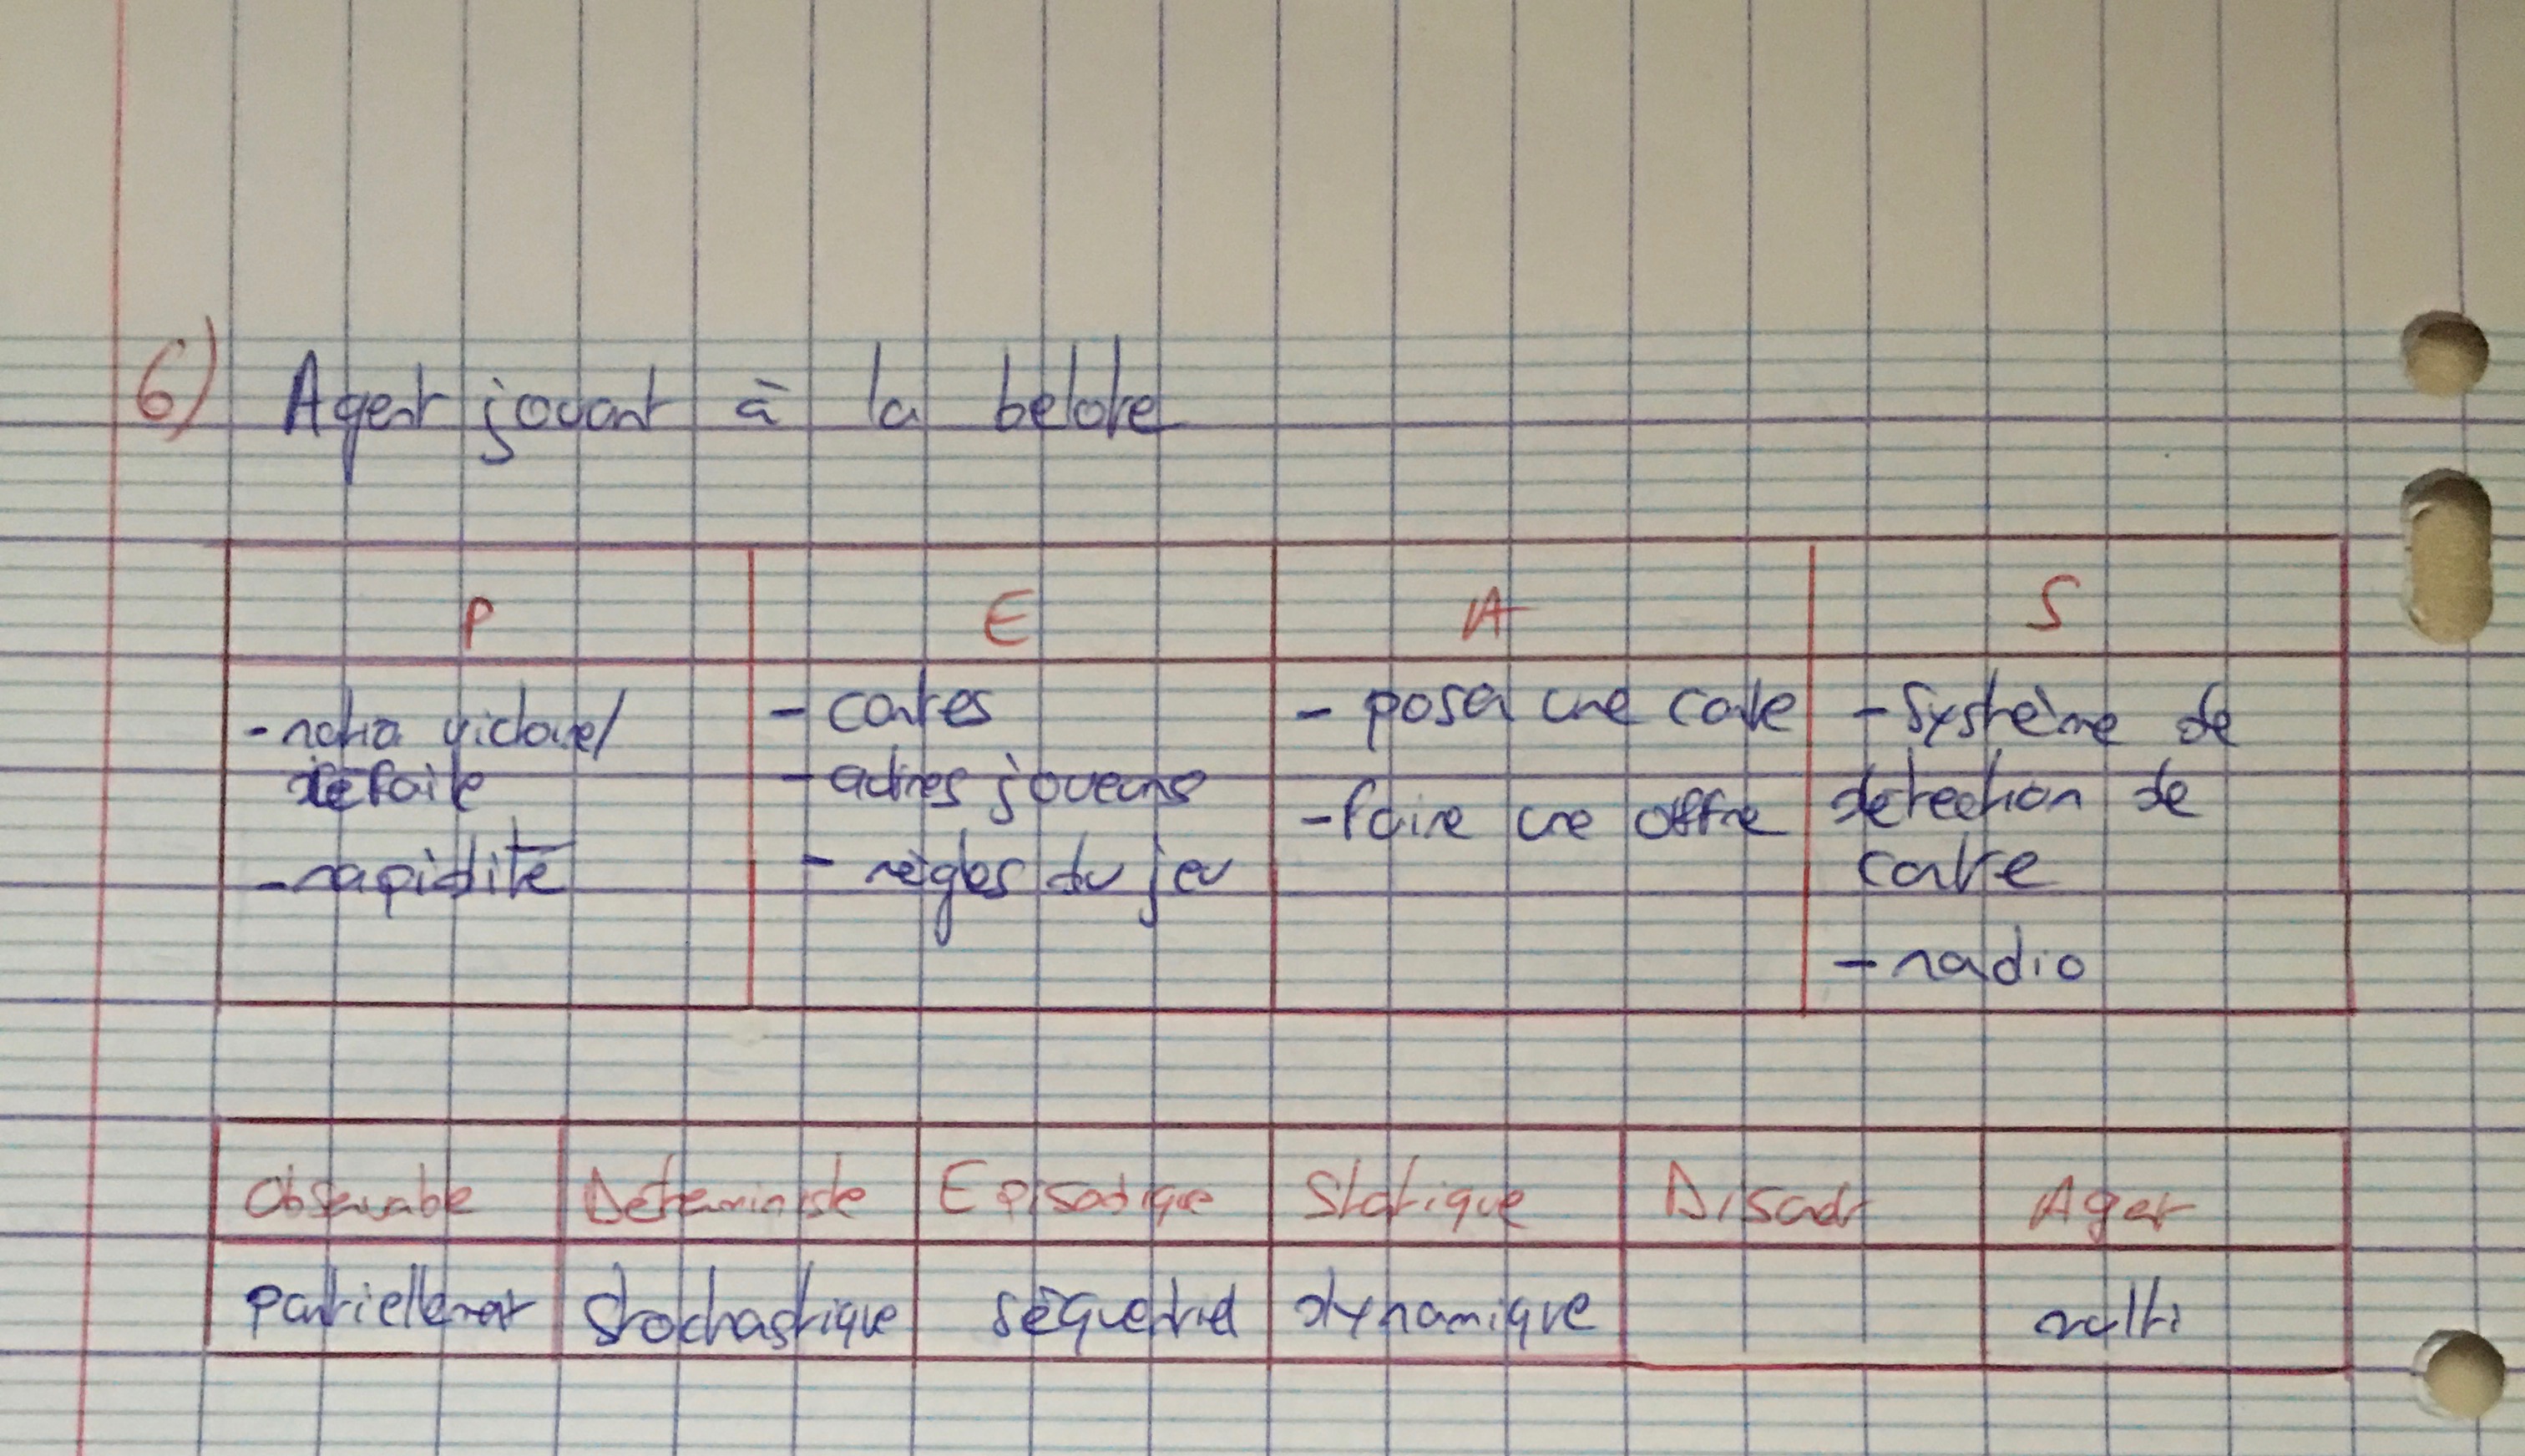 6) Agent jouant à la belote
P E A S
- ratio victoire/
défaite
- rapidité
- cartes
- autres joueurs
- règles du jeu
- poser une carte
- faire une offre
- Système de
détection de
carte
- radio
Observable Déterministe Episodique Statique Discret Agent
partiellement stochastique séquentiel dynamique multi